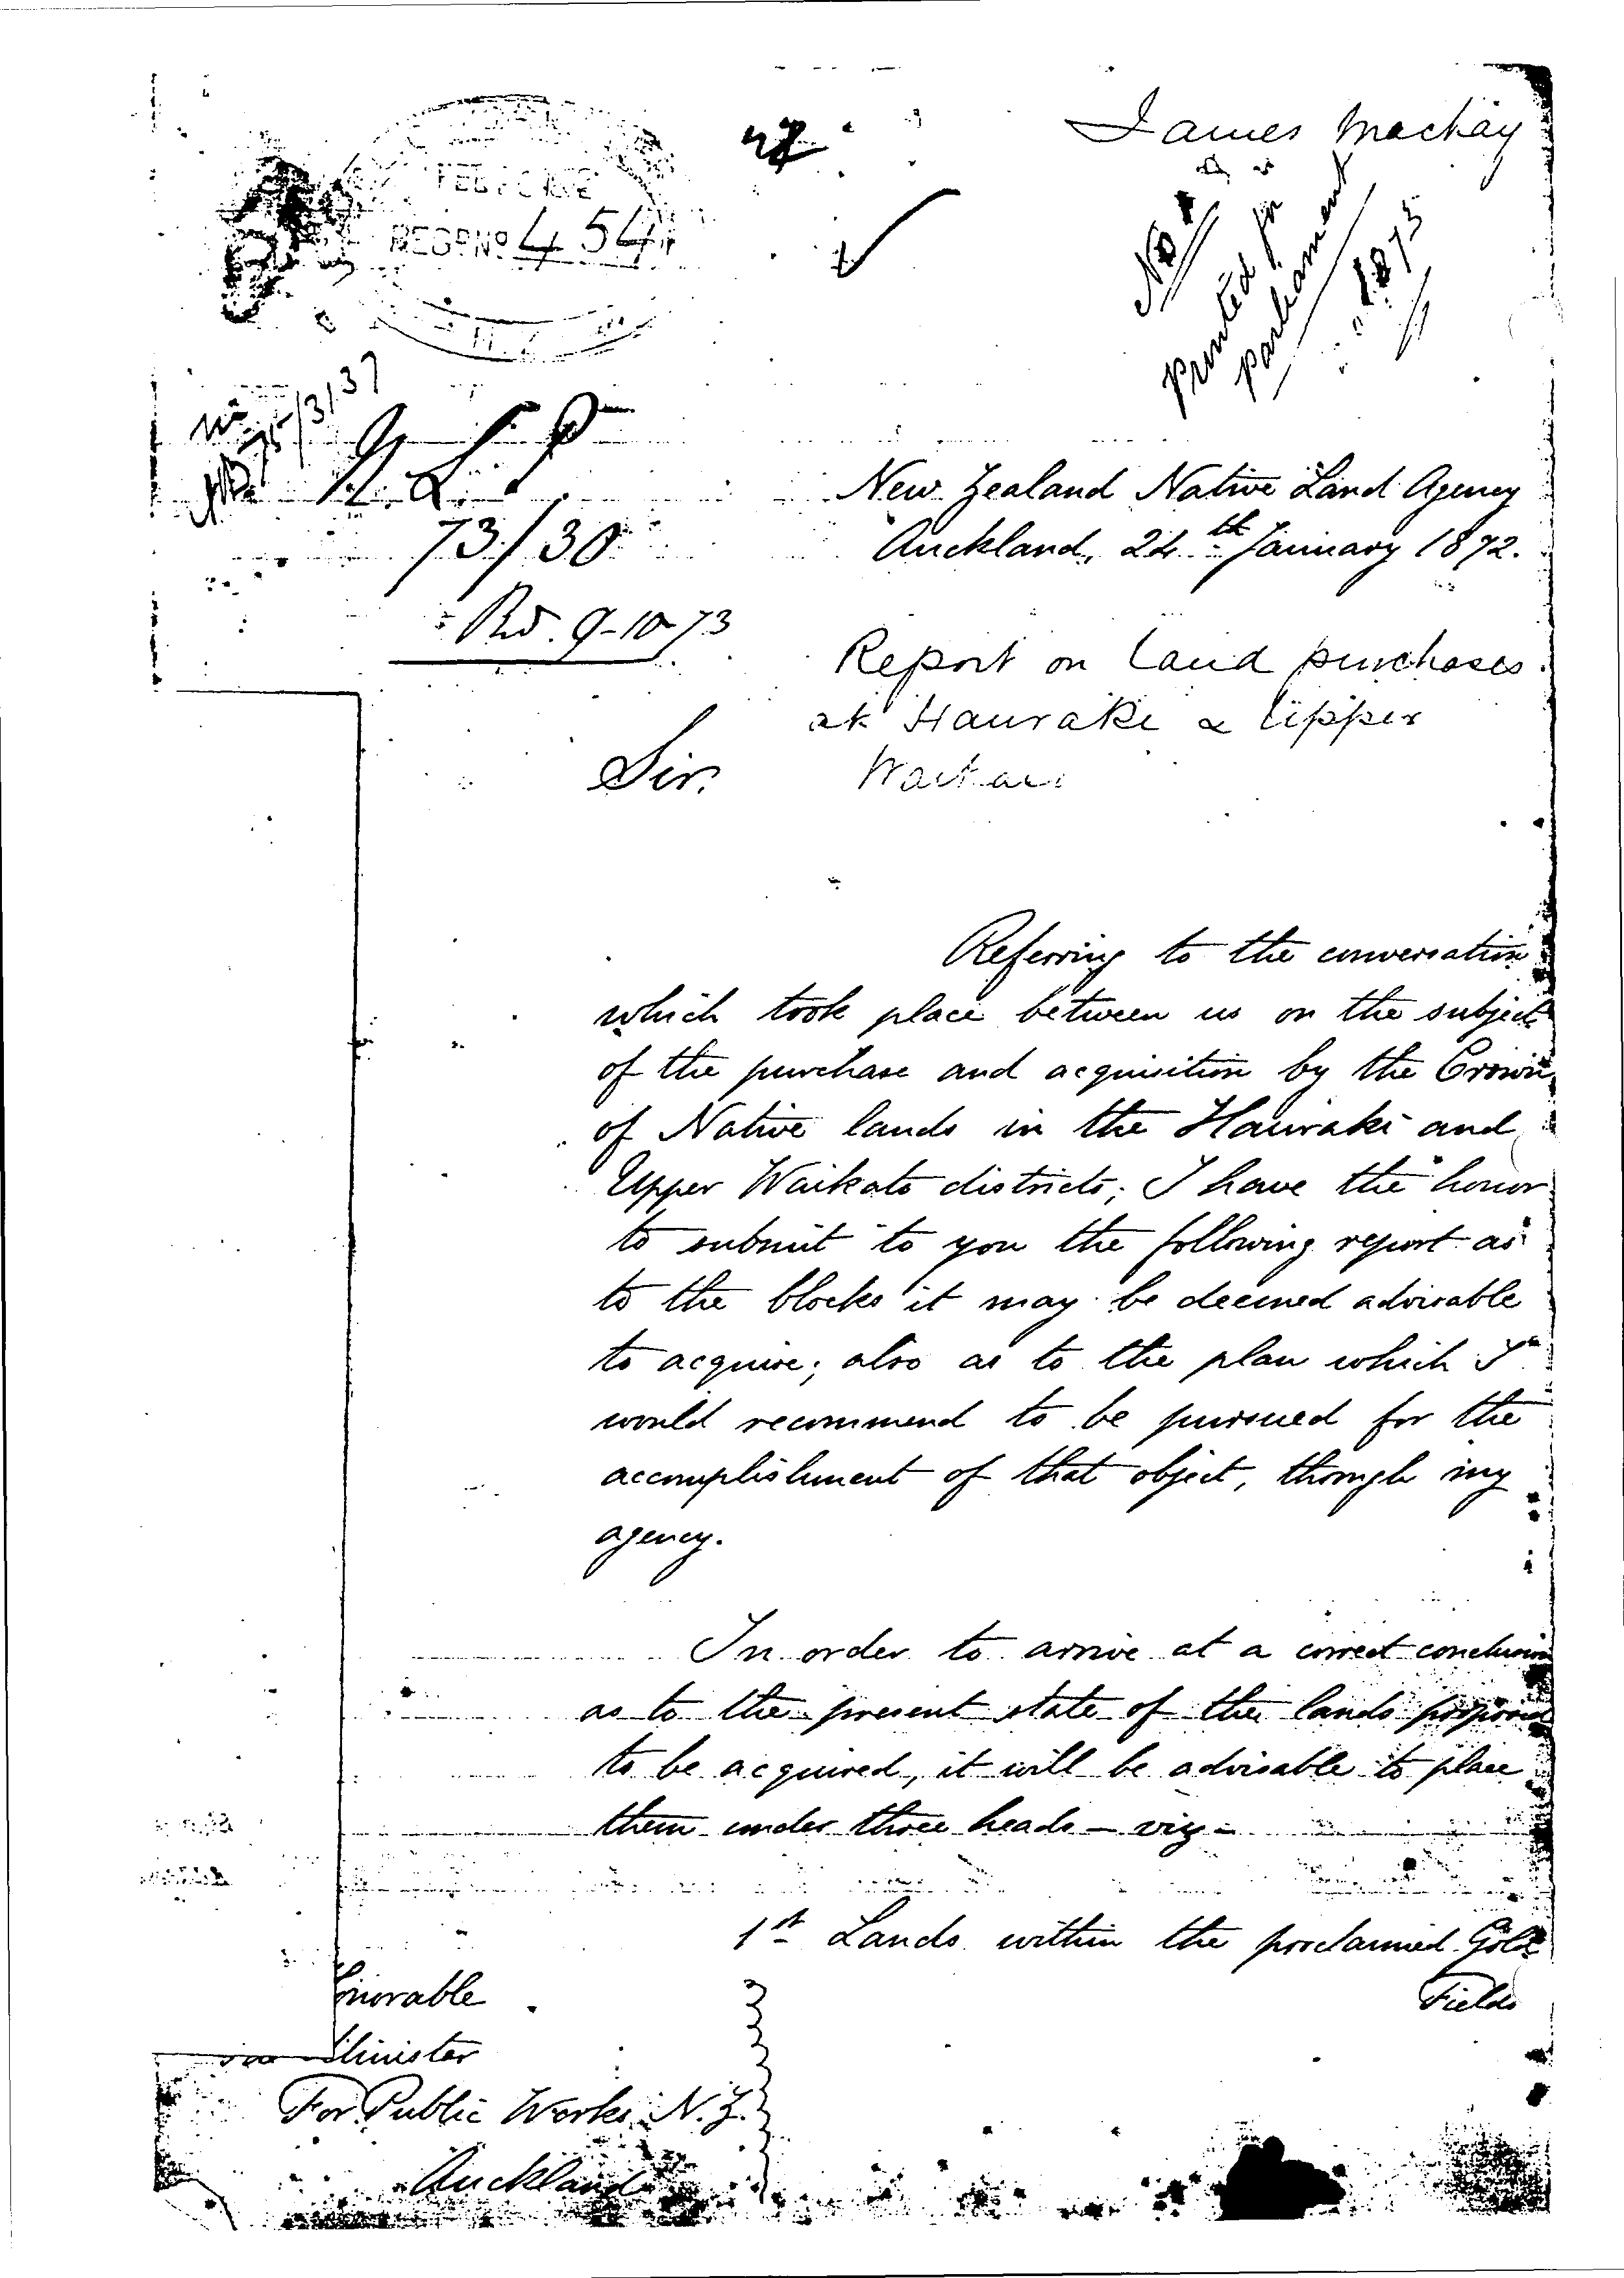 James Mackay
REGD. No 454
N.Z.
No 1
Printed for
parliament
1873
75/3/37
N. L. P
73/30
Rd. 9-10-73
New Zealand Native Land Agency
Auckland, 24th January 1872.
Report on land purchases
at Hauraki & Upper
Waikato
Sir,
Referring to the conversation
which took place between us on the subject
of the purchase and acquisition by the Crown
of Native lands in the Hauraki and
Upper Waikato districts; I have the honor
to submit to you the following report as
to the blocks it may be deemed advisable
to acquire; also as to the plan which I
would recommend to be pursued for the
accomplishment of that object, through my
agency.
In order to arrive at a correct conclusion
as to the present state of the lands proposed
to be acquired, it will be advisable to place
them under three heads – viz –
1st Lands within the proclaimed Gold
Fields
onorable
Minister
For Public Works N.Z.
Auckland